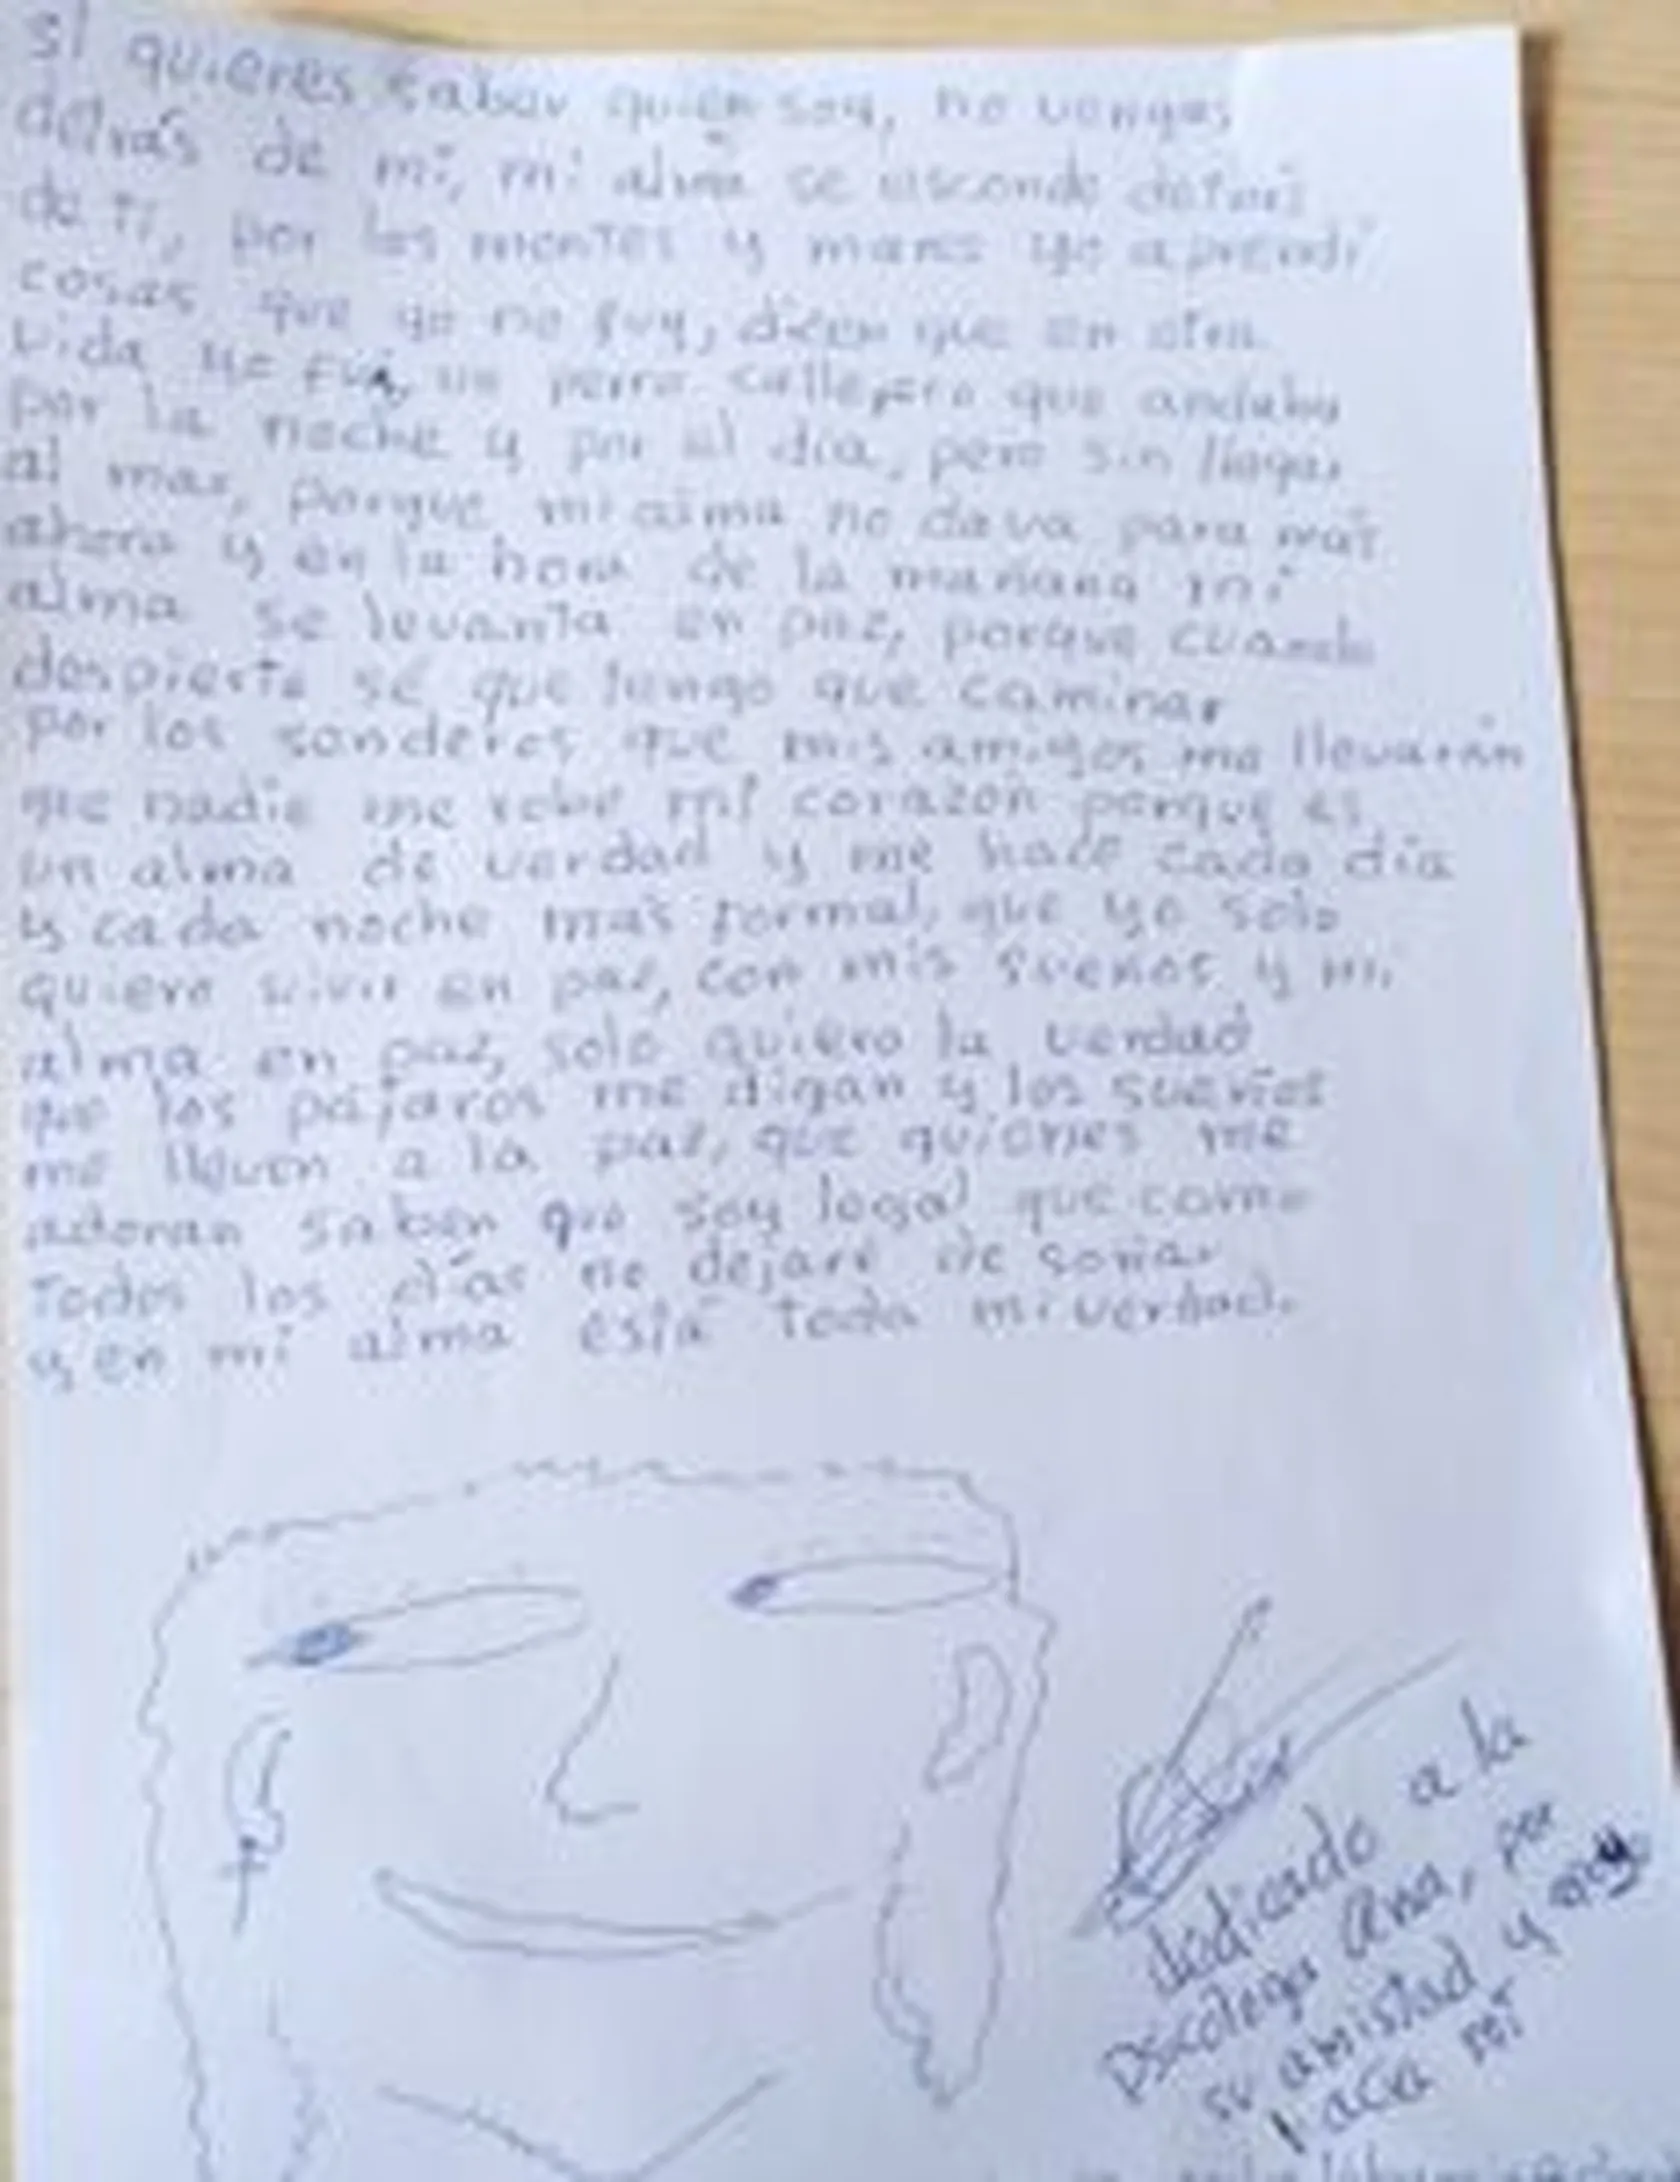 si quieres saber quien soy, no vengas
detrás de mi, mi alma se esconde detras
de ti, por los montes y mares yo aprendí
cosas que yo no fuy, dicen que en otra
vida yo fui, un perro callejero que andaba
por la noche y por el día, pero sin llegar
al mar, porque mi alma no dava para más
ahora y en la hora de la mañana mi
alma se levanta en paz, porque cuando
despierto sé que tengo que caminar
por los senderos que mis amigos me llevarán
que nadie me robe mi corazon porque es
un alma de verdad y me hace cada día
y cada noche más formal, que yo solo
quiero vivir en paz, con mis sueños y mi
alma en paz, solo quiero la verdad
que los pájaros me digan y los sueños
me lleven a la paz, que quienes me
adoran saben que soy legal que como
todos los días no dejaré de soñar
y en mi alma está toda mi verdad.
dedicado a la
Psicologa Ana, por
su amistad y
hacia mi